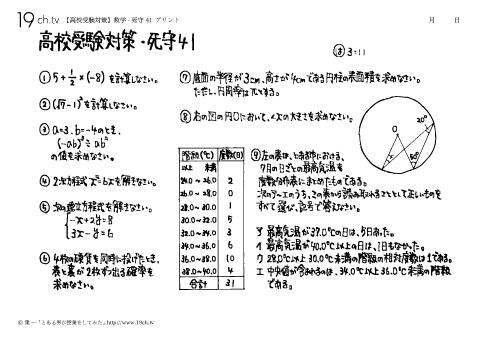 19 ch.tv 【高校受験対策】数学・死守41 プリント
月 日
高校受験対策・死守41
① 5+1/2×(-8) を計算しなさい。
② (√7-1)²を計算しなさい。
③ a=3、b=-4のとき、
(-ab)³÷ab²
の値を求めなさい。
④ 2次方程式 x²=6xを解きなさい。
⑤ 次の連立方程式を解きなさい。
-x+2y=8
3x-y=6
⑥ 4枚の硬貨を同時に投げたとき、
表と裏が2枚ずつ出る確率を
求めなさい。
⑦ 底面の半径が3cm、高さが4cmである円柱の表面積を求めなさい。
ただし、円周率はπとする。
⑧ 右の図の円Oにおいて、∠xの大きさを求めなさい。
20°
O
x
階級(℃) 度数(日)
以上 未満
24.0 ~ 26.0 2
26.0 ~ 28.0 0
28.0 ~ 30.0 1
30.0 ~ 32.0 5
32.0 ~ 34.0 3
34.0 ~ 36.0 6
36.0 ~ 38.0 10
38.0 ~ 40.0 4
合計 31
⑨ 左の表は、とある市における、
7月の日ごとの最高気温を
度数分布表にまとめたものである。
次のア~エのうち、この表から読み取れることとして正しいものを
すべて選び、記号で答えなさい。
ア 最高気温が37.0℃の日は、5日あった。
イ 最高気温が40.0℃以上の日は、1日もなかった。
ウ 28.0℃以上30.0℃未満の階級の相対度数は1である。
エ 中央値が含まれるのは、34.0℃以上36.0℃未満の階級
である。
© 葉一「とある男が授業をしてみた」http://www.19ch.tv